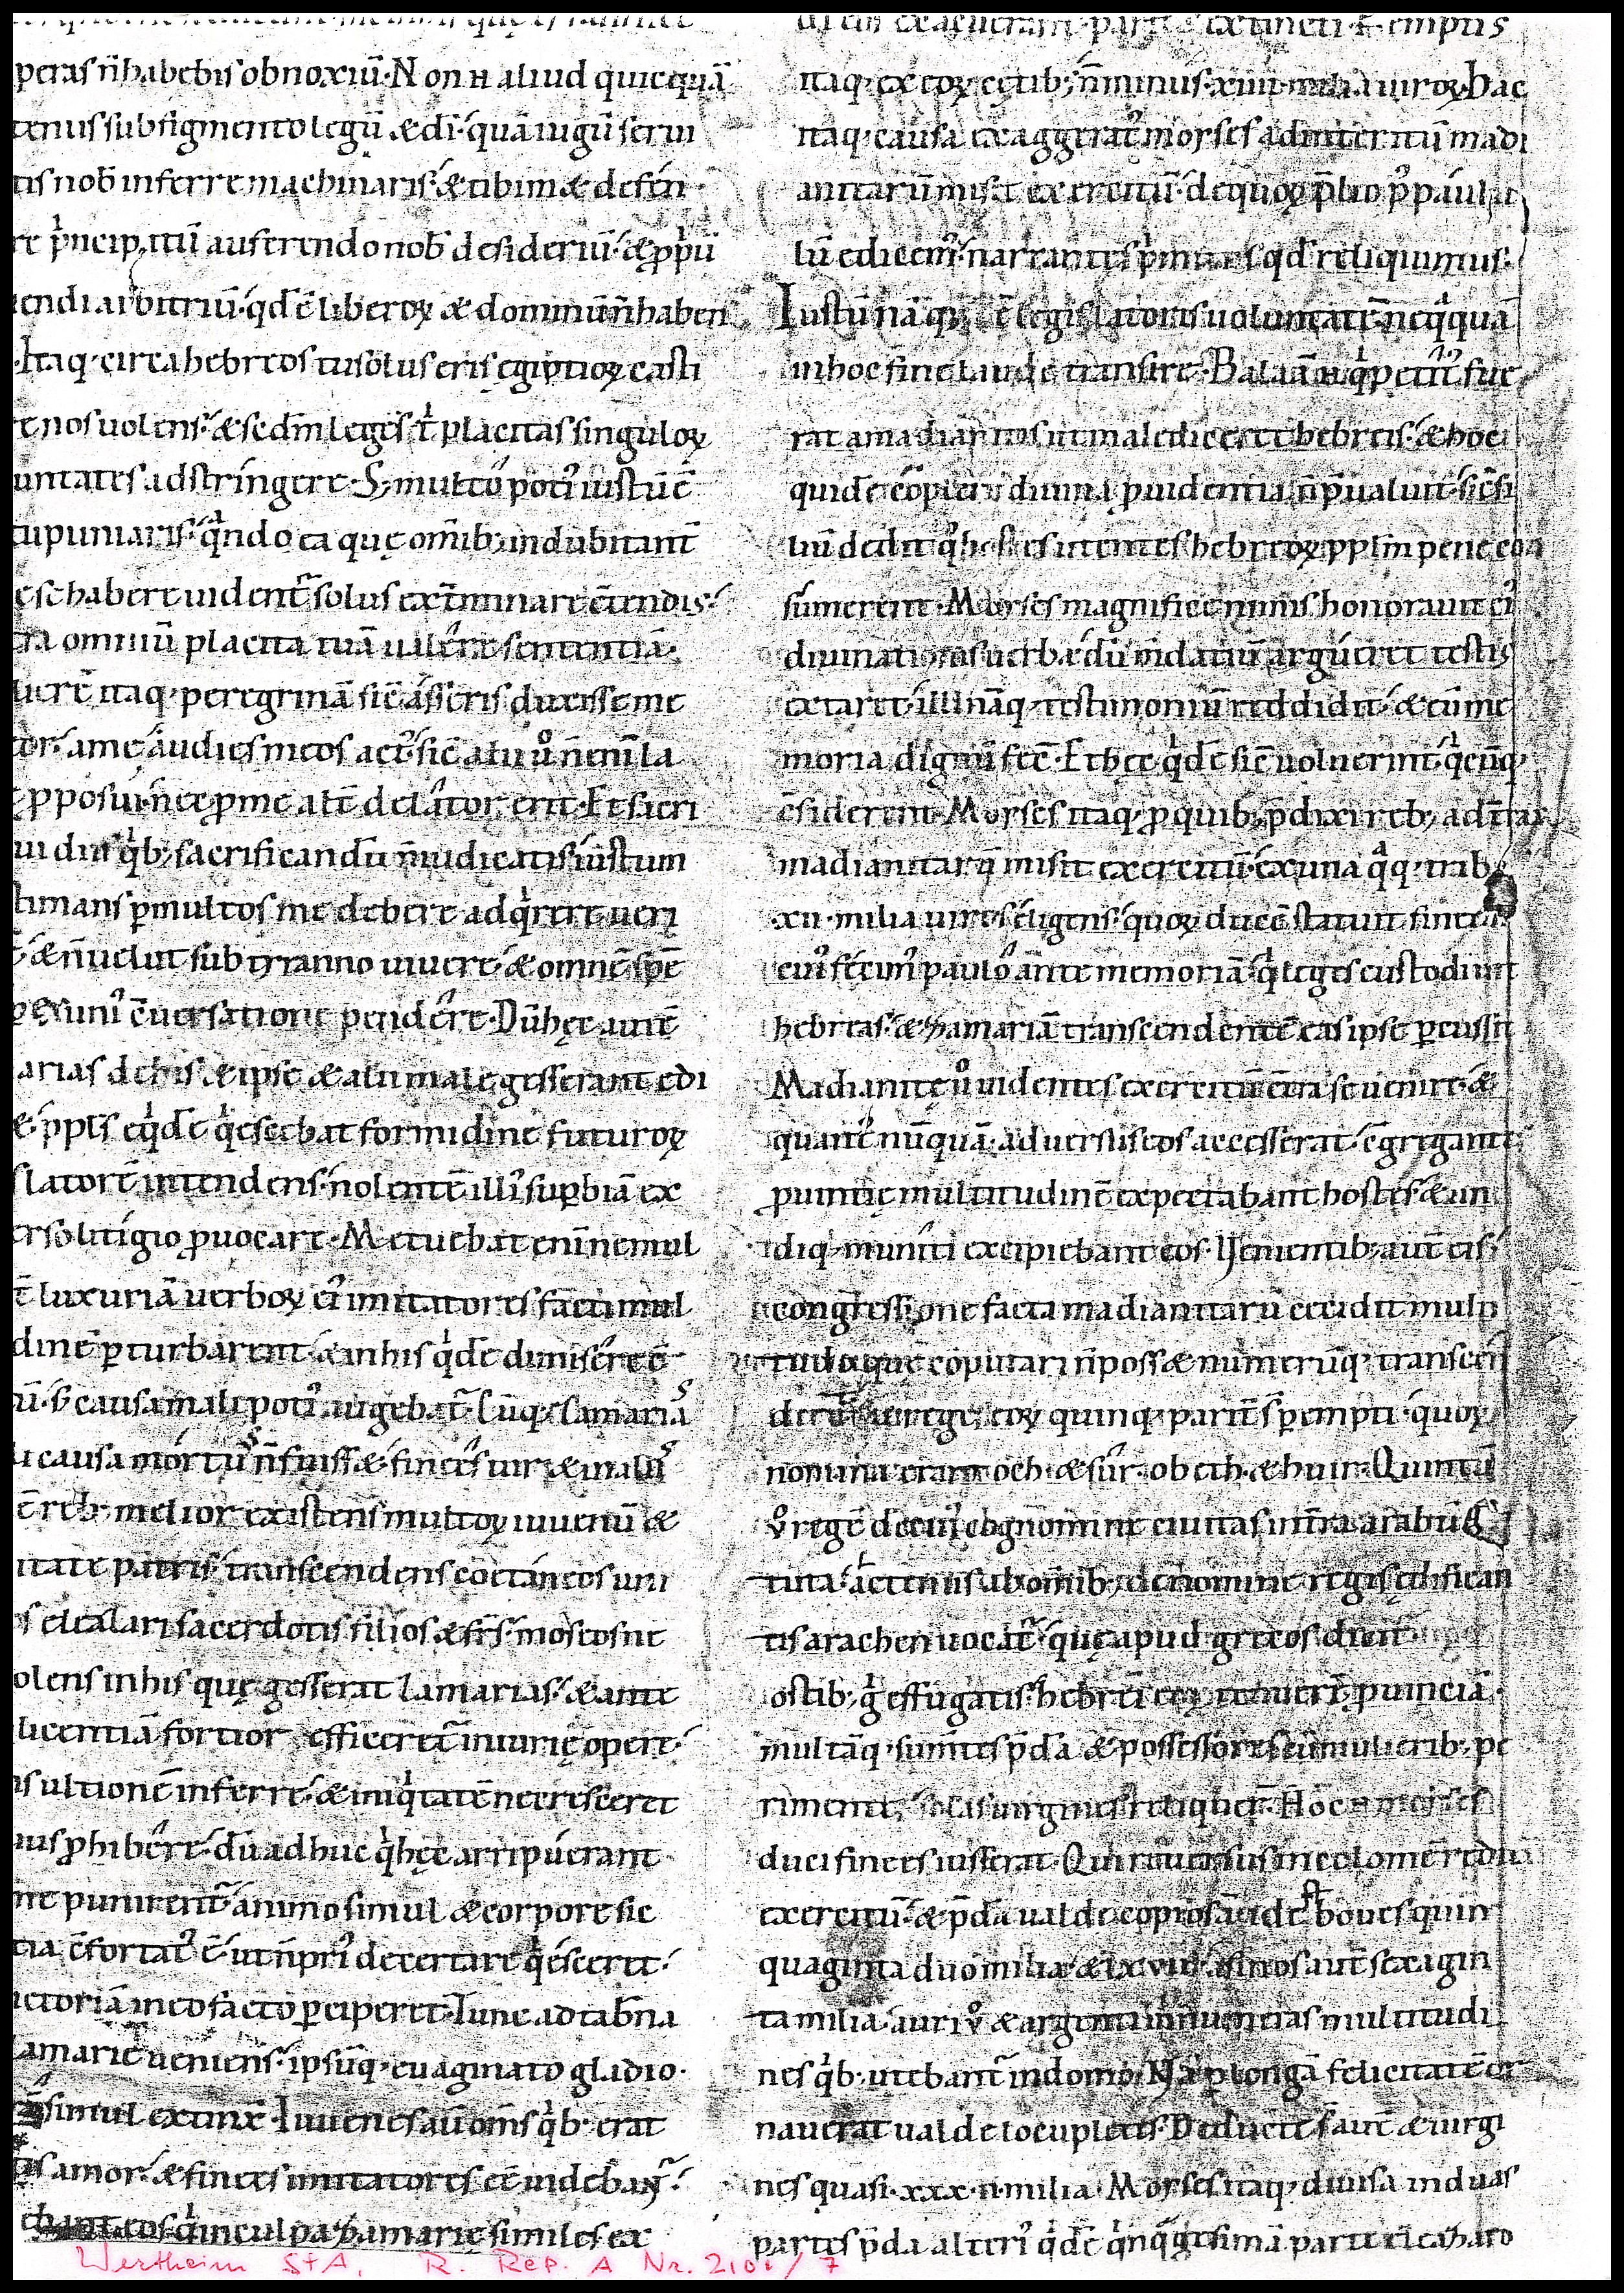 peras n̄ habebis obnoxiū· Non n̄ aliud quicquā
tenus sub figmento legū & dī· quā iugū serui
tis nob̄ inferre machinaris· & tibi m& defen·
re p͛ncipatū auferendo nob̄ desideriū· & ꝓp͛ū
uendi arbitriū· qđ ē liberoꝝ & dominū n̄ haben
·Itaq· circa hebreos tu solus eris egiptioꝝ casti
re nos uolens· & sedm leges ł placitas singuloꝝ
untates adstringere· S; multo poti᾽ iustū ē
tu puniaris· q͛ndo ea quę om̄ib; indubitant̄
esse habere uident̄ solus ext̄minare c̄tendis·
tra omniū placita tuā ualere sententiā·
uerē itaq· peregrinā sic̄ asseris duxisse me
or· a me audies meos act᾽· sic̄ alii ů n̄ enī la
ꝓposui· nec ꝑ me alt̄ delator erit· Et sacri
ui diis q͛b; sacrificandū n̄ iudicatis· iustum
timans ꝑ multos me debere adq͛rere ueri
· & n̄ uelut sub tyranno uiuere· & omnē spē
ex uni᾽ c̄uersatione pendere· Dū hęc aut̄
arias de his & ipse & alii male gesserant edi
&· ppl̄s eq͛dē q͛escebat formidine futuroꝝ
slatorē intendens· nolentē illi᾽ suꝑbiā ex
erso litigio ꝓuocare· Metuebat enī ne mul
ē luxuriā uerboꝝ ei᾽ imitatores facti mul
dinē ꝑturbarent· & in his q͛dē dimiserē ē
ū· s; causa mali poti᾽ augebat̄· Cūq· Zamarias
causa mortu᾽ n̄ fuiss&· finees uir & in aliis
ē reb; melior existens multoꝝ iuuenū &
itate patris· transcendens coetaneos uni
s eleazari sacerdotis filios & fr̄s· moseos ne
olens in his quę gesserat Zamarias· & ante
licentiā fortior efficeret̄ iniurię opere·
ns ultionē inferre· & iniq͛tatē ne cresceret
ius ꝓhibere· dū adhuc q͛ hęc arripuerant·
ne punirent̄· animo simul & corpore sic
tia c̄fortat᾽ ē· ut n̄ pri᾽ decertare q͛esceret·
uictoriā in eo facto ꝑciperet· Tunc ad tab̄na
amarię ueniens· ipsūq· euaginato gladio·
simul extinx̄· Iuuenes aū om̄s q͛b· erat
tis amor· & finees imitatores eē uidebant̄·
ebant eos q͛ in culpa Zamarię similes ex
itaq· ex eoꝝ cętib; n̄ minus· xiiii· milia uiroꝝ· Hac
itaq· causa exaggerat᾽ moyses ad interitū madi
anitarū misit exercitū· de quoꝝ p̄lio p᾽ paulu
lū edicem᾽· narrantes p͛mitus qđ reliquimus·
Iustū nāq; ē legislatoris uoluntatē neq͛quā
in hoc sine laude transire· Balaā n̄ q͛ petit᾽ fue
rat a madianitis ut malediceret hebreis· & hoc
quidē c̄plere diuina ꝓuidentia n̄ p̄ualuit· sic̄si
liū dedit q͛ hostes utentes hebreoꝝ ppl̄m pene con
sumerent· Moyses magnifice nimis honorauit ei᾽
diuinationis uerba· dū midatiū argueret testis
extaret· illi nāq· testimoniū reddidit· & eū me
moria dignū fec̄· Et hęc q͛dē sic̄ uoluerint· q͛cūq·
c̄siderent· Moyses itaq· ꝓ quib; p̄dixi reb; ad t̄ras
madianitarū misit exercitū· ex una q͛q· trib᾽
xii· milia uires eligens· quoꝝ ducē statuit fineen
cui᾽ fecim᾽ paulo ante memoriā· q͛ leges custodiuit
hebreas· & Zamariā transcendentē eas ipse ꝑcussit
Madianitę ů uidentes exercitū c̄tra se uenire· &
quant̄ nūquā· aduersus eos accesserat· c̄gregante
ꝓuintię multitudinē expectabant hostes· & un
diq· muniti excipiebant eos· Uenientib; aut̄ eis·
congressione facta madianitarū cecidit multi
tudo que c̄putari n̄ poss& numerūq; transcen
nomina erant och· & sur· obeth· & hur· Quintū
ů regē de cui᾽ cognomine ciuitas intra arabū s
tita· actenus ab omīb; de nomine regis ędifican
tis arachen uocat̄· quę apud grecos dicit̄
ostib; g͛ effugatis· hebrei eoꝝ tenuerī ꝓuinciā·
multāq· sum̄tes p̄da & possessores cū mulierib; pe
riment· solas uirgines reliquer̄· Hoc n̄ moyses
duci finees iusserat· Qui reuersus incolomē redu
exercitū· & p̄da ualde copiosā· id ē boues quin
quaginta duo milia· & lxvii· asinos aut̄ sexagin
ta milia· auri ů & argenti innumeras multitudi
nes q͛b· utebant̄ in domo· Nā ꝓ longā felicitatē or
nauerat ualde locupletes· Deducte s̄ aut̄ & uirgi
nes quasi· xxx· ii· milia· Moyses itaq; diuisa in duas
partes p̄da alteri᾽ q͛dē q͛nq͛gesimā parte eleazaro
Wertheim StA, R. Rep. A Nr. 2101/7